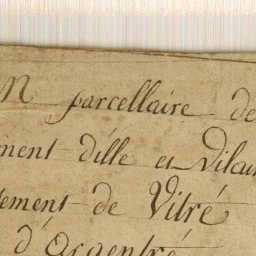 parcellaire de
ment d'ille et Vilai
tement de Vitré
d'Argentré